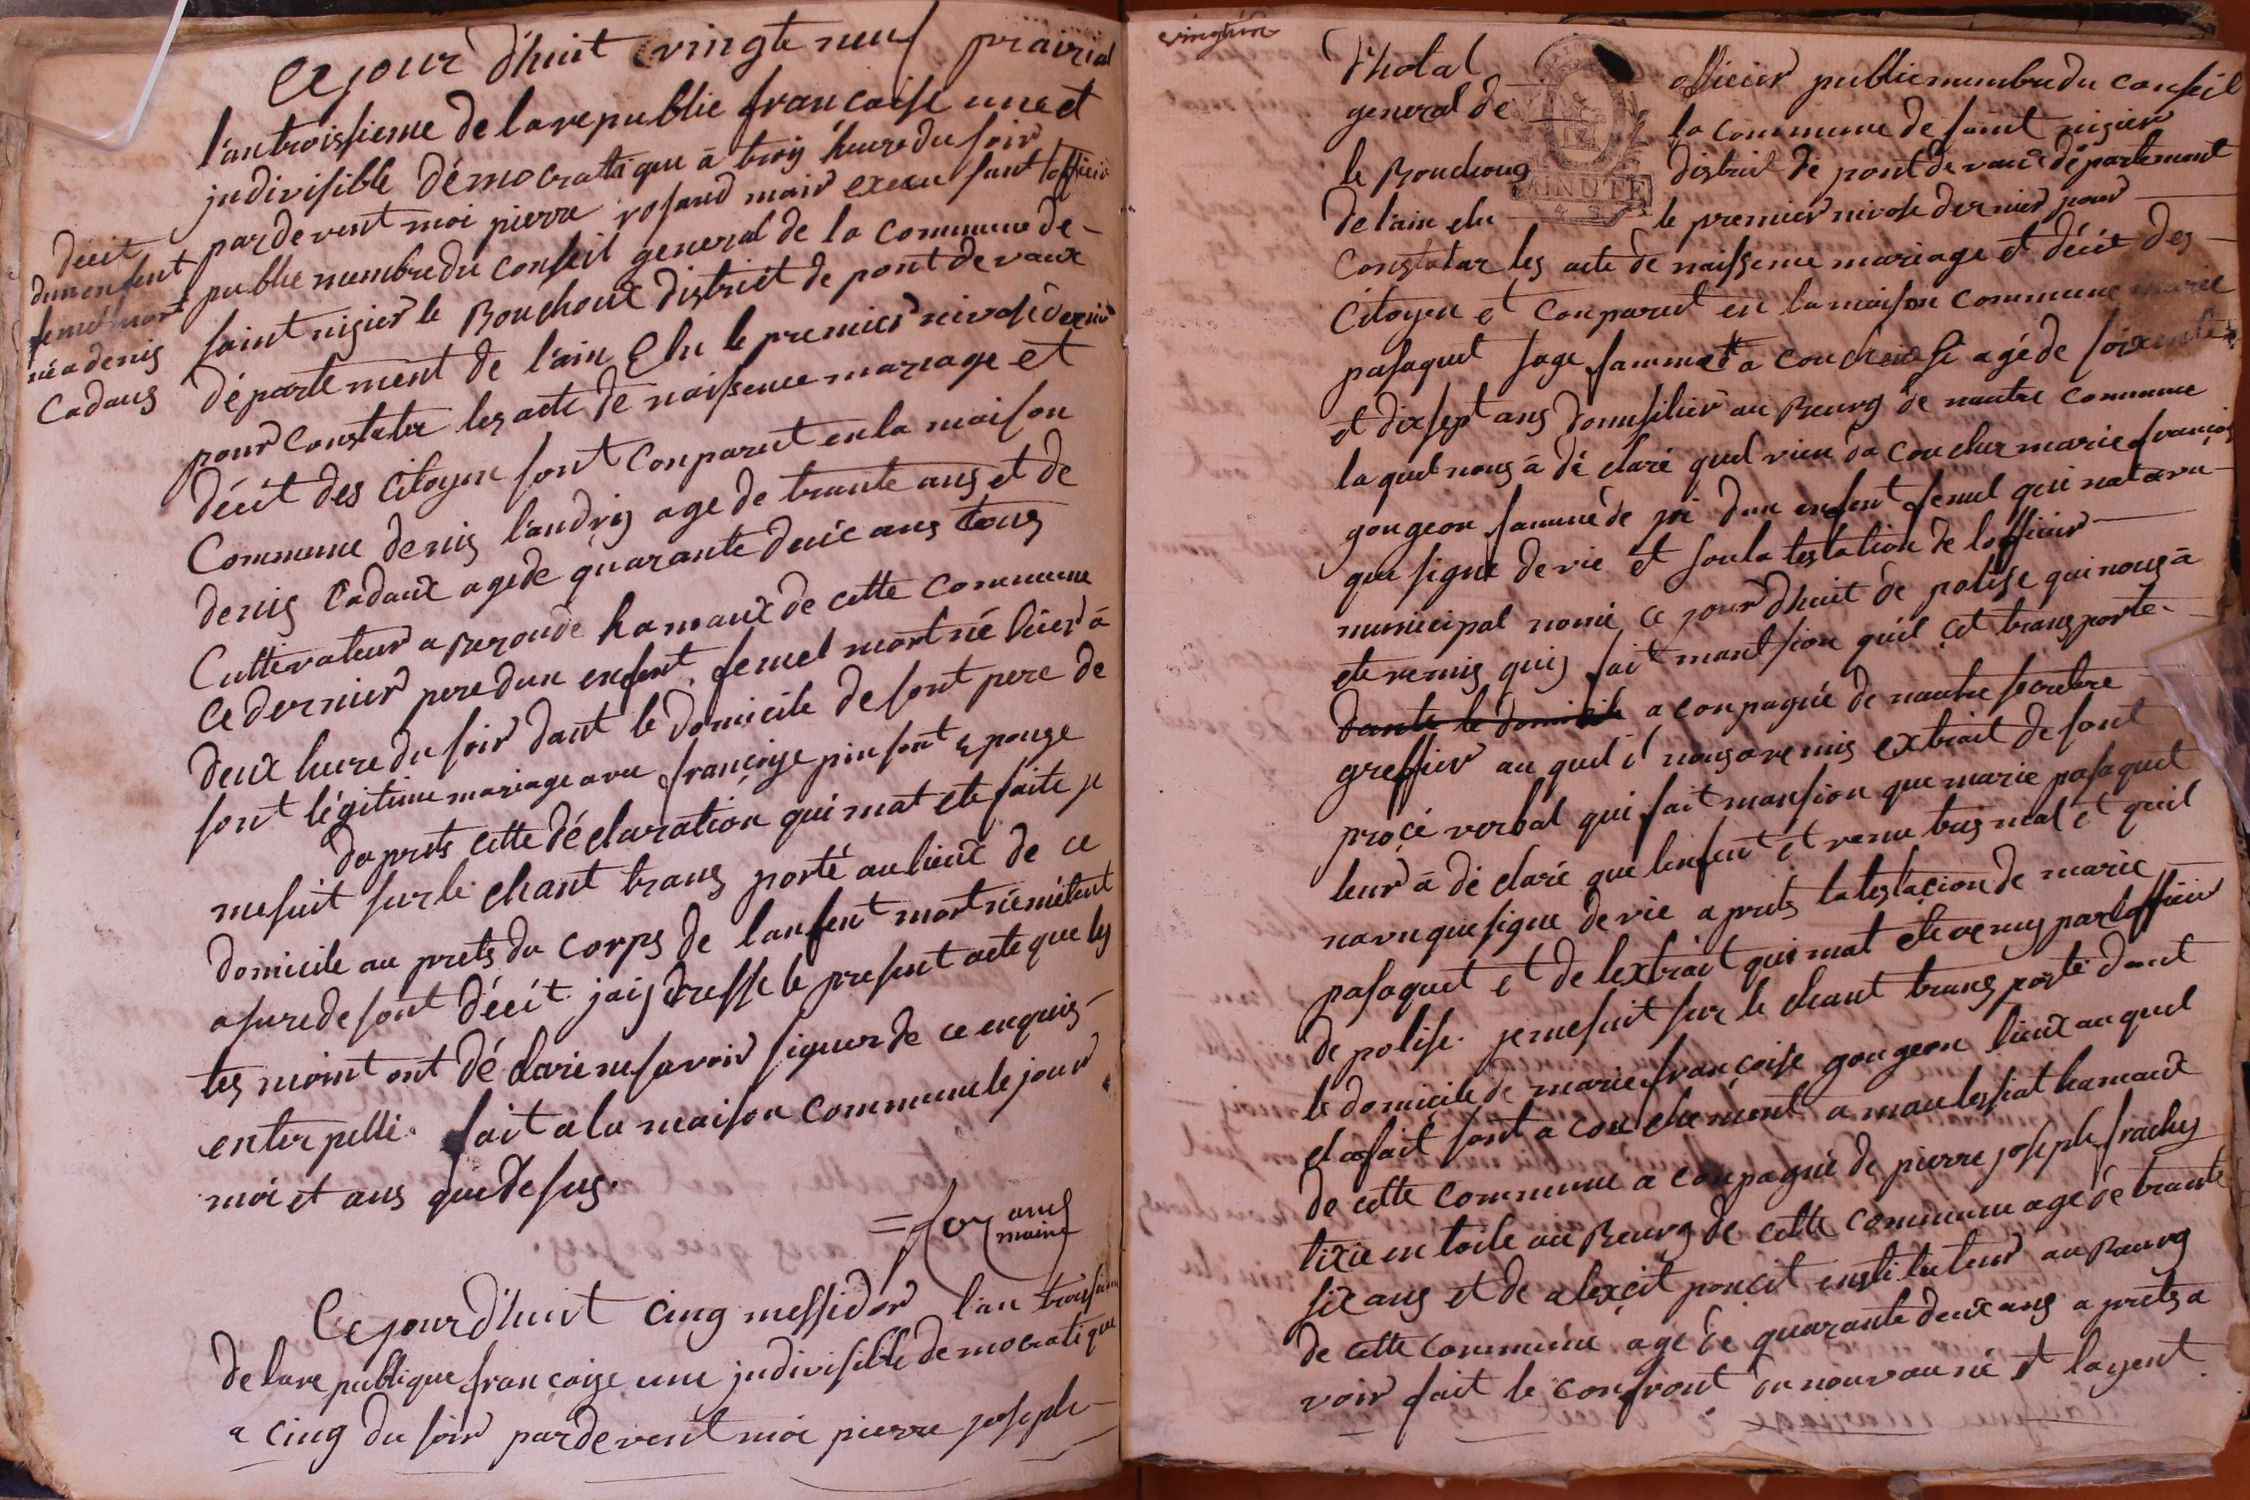 Ce jour d'huit vingte neuf prairial
l'antroissieme de la republic francaise une et
judivisible démocratique à trois heure du soir
pardevent moi pierre rosand mair exersant l'officier
public membre du conseil general de la commune de
saint nisier le Bouchoux district de pont de vaux
département de l'ain Elu le premier nivose dernier
pour constater les acte de naissence mariage et
décit des citoyen sont conparut en la maison
Commune denis landris age de trante ans et de
denis Cadaux age de quarante deux ans tous
Cultivateur a hamaux de cette commune
Ce dernier pere dun enfent femel mort né hier à
deux heure du soir dant le domicile de sont pere de
sont légitime mariage avec françoise pin sont épouse
daprets cette déclaration qui mat ete faite je
me suit sur le chant trans porté au lieux de ce
domicile au prets du corps de lanfent mort né métent
asure de sont décit jais dressé le present acte que les
tes moint ont dé claré ne savoir signer de ce enquis
enterpellé. fait a la maison commune le jour
moi et ans que desus.
decit
dun enfent
femel mort
né a denis
Cadaus
Ce jour d'huit cinq messidor l'an
de la re publique françoise une judivisible democratique
a cinq du soir pardevent moi pierre joseph
Tholal officier public membre du conseil
general de la commune de saint nisier
le Bouchoux district de pont de vaux département
MINUTE
de l'ain elu le premier nivose dernier pour
constater les acte de naissence mariage et décit des
Citoyen et conparut en la maison commune marie
pasaquet sage famme a agé de soixente
et dixsept ans domisilier au Bourg de nautre commune
la quel nous à dé claré quel vien da coucher marie françois
gougeon famme de dun enfent femel qui nat avu
que signe de vie et sou la testation de lofficier
municipal nomé ce jour d'huit de polise qui nous à
ete remis qui fait mantsion quil cet trans porte
dante le domicile a conpagné de nautre secretere
greffier au quel il nous a remis extrait de sont
procé verbal qui fait mansion que marie pasaquet
leur à dé claré que lenfent et venu tres mal et quil
navu que signe de vie a prets latestacion de marie
pasaquet et de lextrait qui mat ete remis par lofficier
de polise. je me suit sur le chant trans porté dant
le domicile de marie françoise gougeon lieux au quel
el a fait sont a couchement a hamaux
de cette commune a conpagné de pierre joseph
en toile au Bourg de cette commune age de trante
six ans et de poncit enstituteur au Bourg
de cette commune age de quarante deux ans a prets a
voir fait le confront du nouvau né et layent